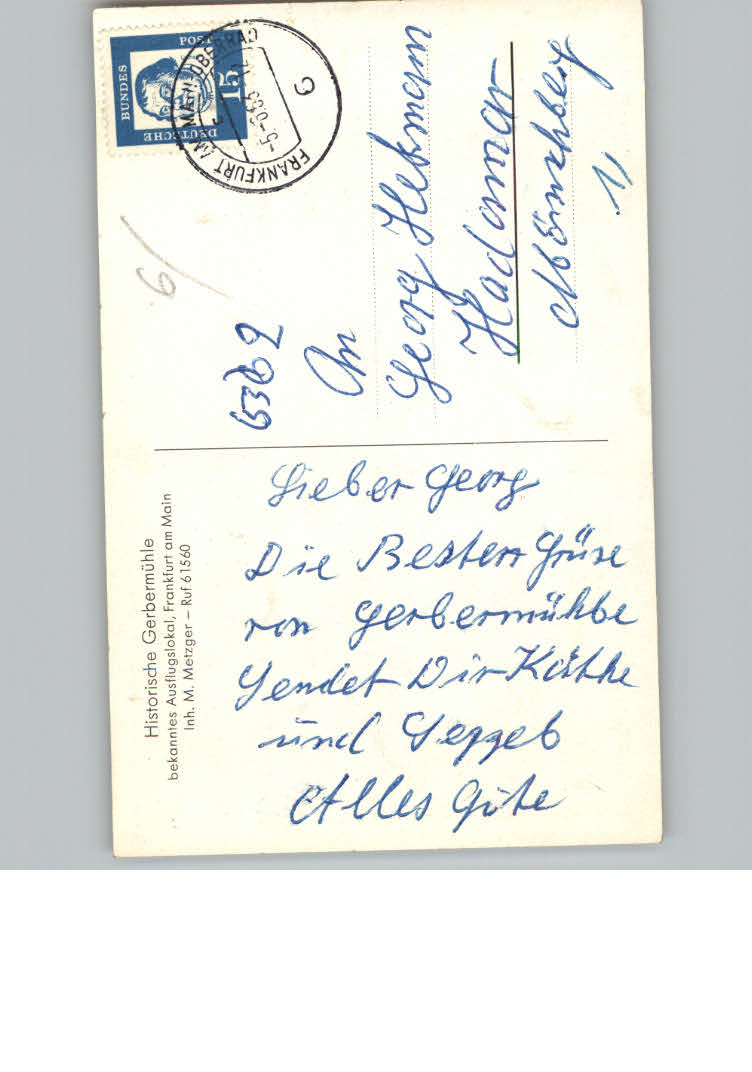 Historische Gerbermühle
bekanntes Ausflugslokal, Frankfurt am Main
Inh. M. Metzger – Ruf 61560
Lieber Georg
Die Besten Grüse
von Gerbermühle
Sendet Dir Käthe
und Seppeb
Alles Gute
DEUTSCHE
BUNDES
POST
15
FRANKFURT AM MAIN-OBERRAD
c
6
An
Georg
Hadamar
Mönchberg
1